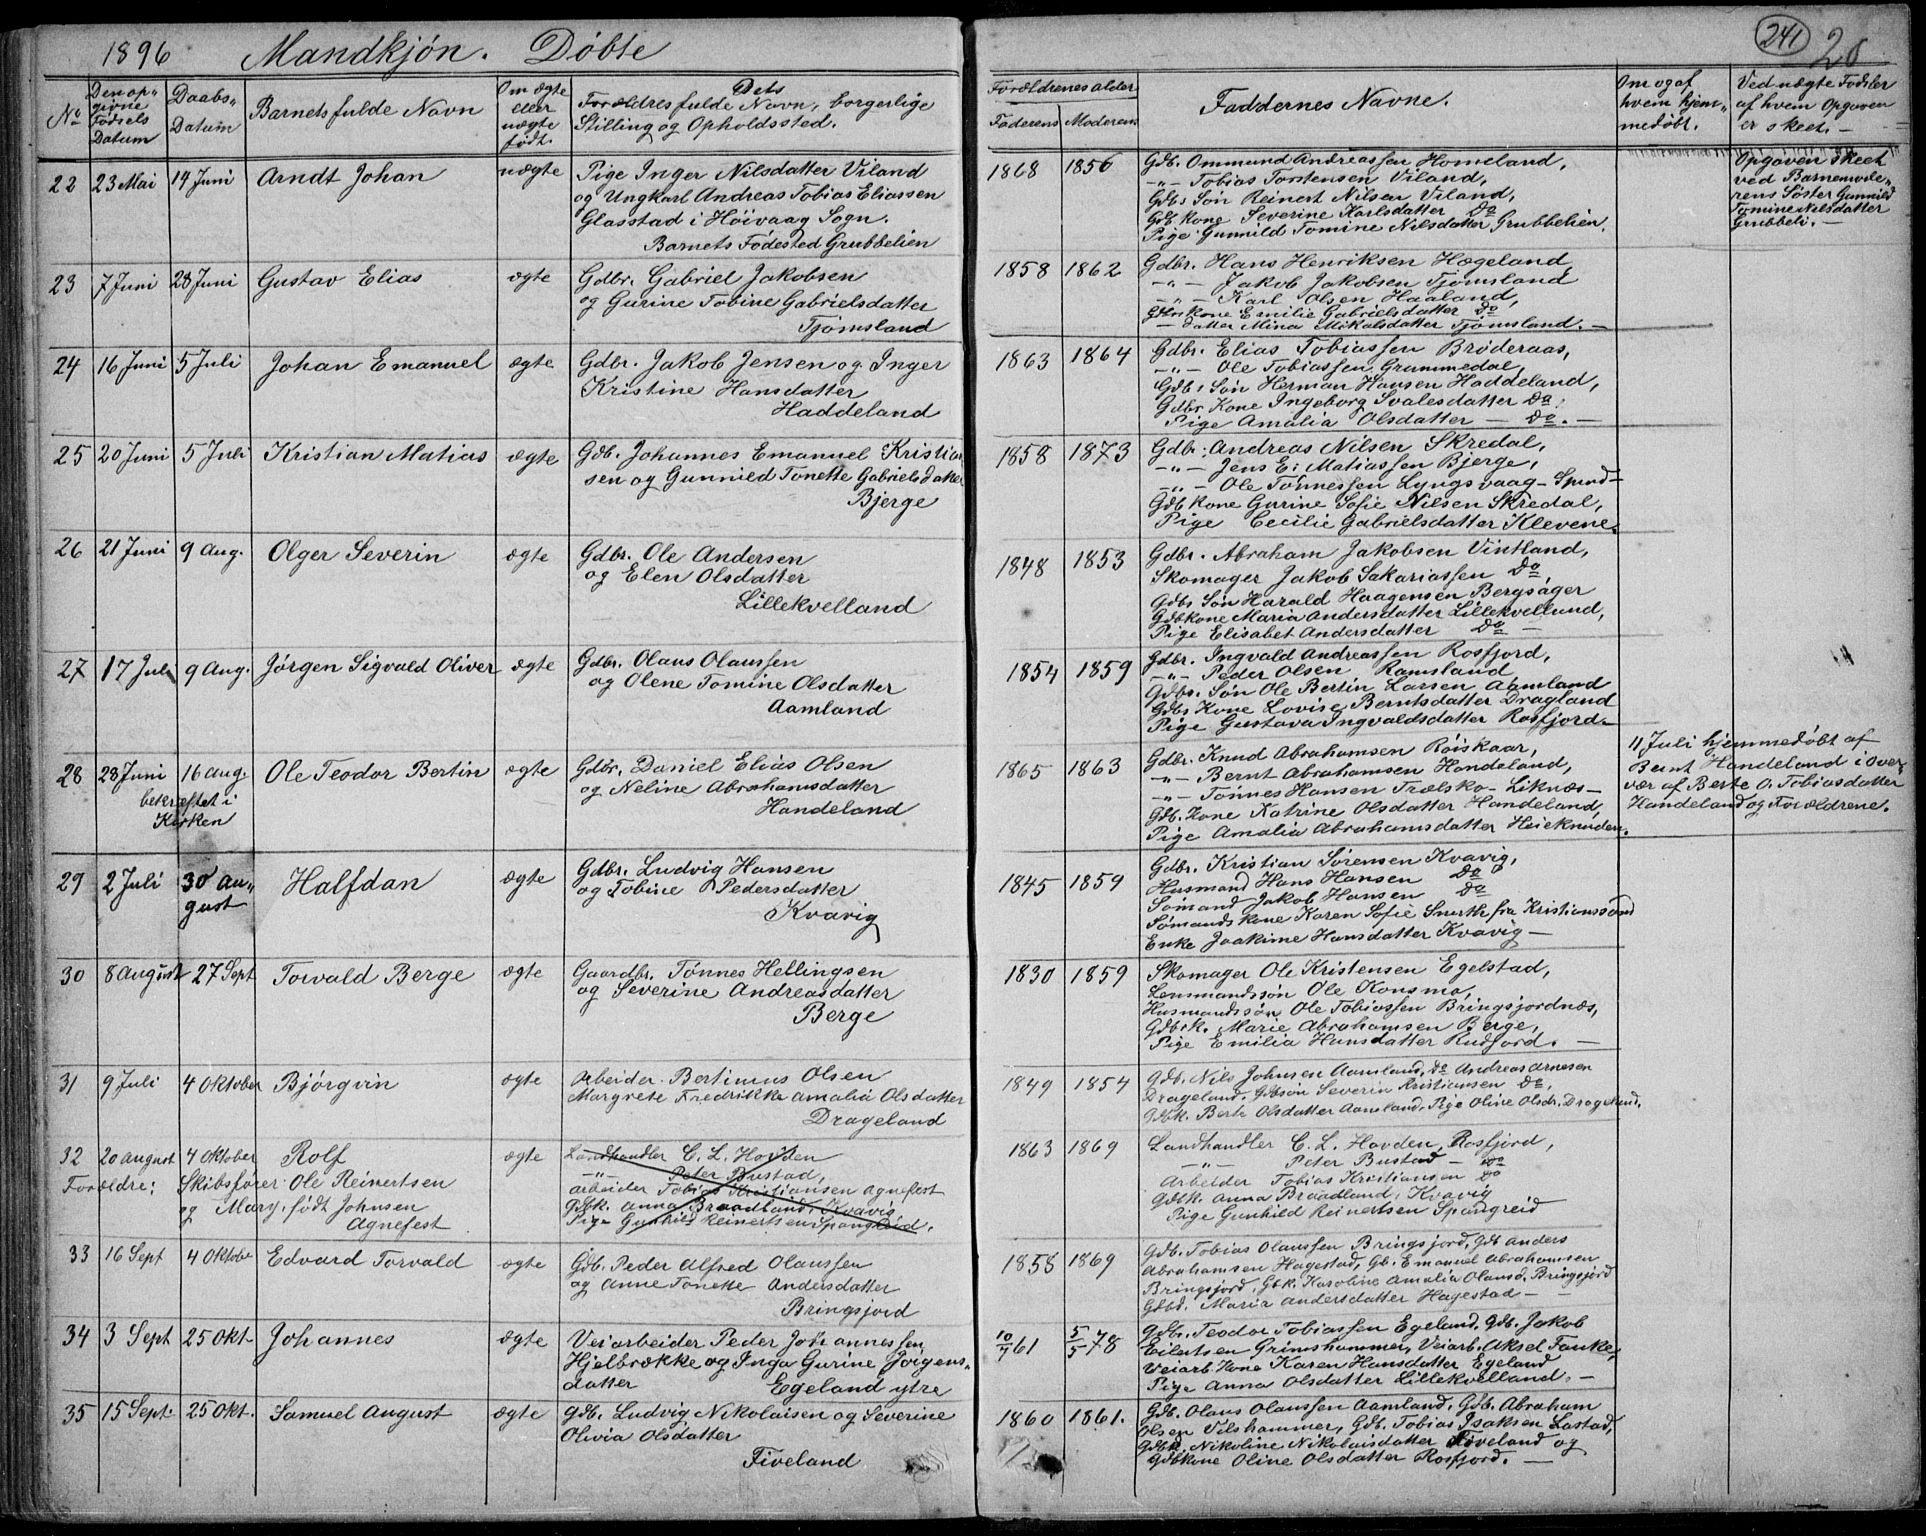 1896 Mandkjön. Döbte
No
Den op-
givne
Födsels
Datum
Daabs-
Datum
Barnets fulde Navn
Om ægte
eller
uægte
födt.
Dets
Forældres fulde Navn, borgerlige
Stilling og Opholdssted.
22 23 Mai 14 Juni Arndt Johan uægte Pige Inger Nilsdatter Viland
og Ungkarl Andreas Tobias Eliassen
Glasstad i Höivaag Sogn.
Barnets Födested Grubbelien
23 7 Juni 28 Juni Gustav Elias ægte Gdbr. Gabriel Jakobsen
og Gurine Tobine Gabrielsdatter
Tjömsland
24 16 Juni 5 Juli Johan Emanuel ægte Gdbr. Jakob Jensen og Inger
Kristine Hansdatter
Haddeland
25 20 Juni 5 Juli Kristian Matias ægte Gdb. Johannes Emanuel Kristian
sen og Gunnild Tonette Gabrielsdatter
Bjerge
26 21 Juni 9 Aug. Olger Severin ægte Gdbr. Ole Andersen
og Elen Olsdatter
Lillekvelland
27 17 Juli 9 Aug. Jörgen Sigvald Oliver ægte Gdbr. Olaus Olaussen
og Olene Tomine Olsdatter
Aamland
28 28 Juni 16 Aug. Ole Teodor Bertin ægte Gdbr. Daniel Elias Olsen
bekræftet i og Neline Abrahamsdatter
Kirken Handeland
29 2 Juli 30 Au- Halfdan ægte Gdbr. Ludvig Hansen
gust og Tobine Pedersdatter
Kvavig
30 8 August 27 Sept Torvald Berge ægte Gaardbr. Tönnes Hellingsen
og Severine Andreasdatter
Berge
31 9 Juli 4 Oktober Björgvin ægte Arbeider Bertinius Olsen
Margrete Fredrikke Amalia Olsdatter
Drageland
32 20 August 4 Oktober Rolf ægte Landhandler C. L. Hovden
-"- Peter Bustad,
Forældre: Skibsförer Ole Reinertsen Arbeider Tobias Kristiansen Agnefest
og Mary, födt Johnsen Gdbk. Anna Braadland, Kvavig
Agnefest Pige Gunhild Reinertsen Spangreid.
33 16 Sept 4 Oktobr Edvard Torvald ægte Gdb. Peder Alfred Olaussen
og Anne Tonette Andersdatter
Bringsjord
34 3 Sept 25 Okt. Johannes ægte Veiarbeider Peder Johannessen
Hjelbrække og Inga Gurine Jörgens-
datter Egeland ytre
35 15 Sept. 25 Okt. Samuel August ægte Gdb. Ludvig Nikolaisen og Severine
Olivia Olsdatter
Fiveland
241
Forældrenes alder
Faderens Moderens
Faddernes Navne.
Om og af
hvem hjem-
medöbt.
Ved uægte Födsler
af hvem Opgaven
er skeet. —
1868 1856 Gdb. Ommund Andreassen Homeland,
-"- Tobias Torstensen Viland,
Gdbs Sön Reinert Nilsen Viland,
Gdb Kone Severine Karlsdatter Do
Pige Gunnild Tomine Nilsdatter Grubbelien.
Opgaven skeet
ved Barnemode-
rens Söster Gunnild
Tomine Nilsdatter
Grubbeli. —
1858 1862 Gdbr. Hans Henriksen Hægeland
-"- Jakob Jakobsen Tjömsland
-"- Karl Olsen Haaland,
Gdbrkone Emilie Gabrielsdatter Do
— datter Mina Mikalsdatter Tjömsland. —
1863 1864 Gdbr. Elias Tobiassen Bröderaas,
-"- Ole Tobiassen Grummedal,
Gdbs Sön Herman Hansen Haddeland,
Gdbr Kone Ingeborg Svalesdatter Do.
Pige Amalia Olsdatter — Do. —
1858 1873 Gdbr. Andreas Nilsen Skredal,
-"- Jens E. Matiassen Bjerge,
-"- Ole Tönnessen Lyngsvaag - Spind -
Gdbkone Gurine Sofie Nilsen Skredal,
Pige Cecilie Gabrielsdatter Klevene.
1848 1853 Gdbr. Abraham Jakobsen Vintland,
Skomager Jakob Sakariassen Do,
Gdbs Sön Harald Haagensen Bergsager
Gdbkone Maria Andersdatter Lillekvelland,
Pige Elisabet Andersdatter Do —
1854 1859 Gdbr. Ingvald Andreassen Rosfjord,
-"- Peder Olsen Ramsland
Gdbs. Sön Ole Bertin Larsen Aamland
Gdbs Kone Lovise Berntsdatter Dragland
Pige Gustava Ingvaldsdatter Rosfjord. —
1865 1863 Gdbr. Knud Abrahamsen Röiskaar,
-"- Bernt Abrahamsen Handeland,
-"- Tönnes Hansen Trælsko - Liknæs —
Gdb. Kone Katrine Olsdatter Handeland,
Pige Amalia Abrahamsdatter Heieknuden.
11 Juli hjemmedöbt af
Bernt Handeland i Over-
vær af Berte O. Tobiasdatter
Handeland og Forældrene.
1845 1859 Gdbr. Kristian Sörensen Kvavig,
Husmand Hans Hansen Do
Sömand Jakob Hansen Do
Sömandskone Karen Sofie Snerth fra Kristianssand
Enke Joakime Hansdatter Kvavig —
1830 1859 Skomager Ole Kristensen Egelstad,
Lensmandssön Ole Konsmo,
Husmandssön Ole Tobiassen Bringsjordnæs,
Gdbrk. Marie Abrahamsen Berge,
Pige Emilia Hansdatter Rudjord. —
1849 1854 Gdb. Nils Johnsen Aamland, Do Andreas Arnesen
Drageland, Gdbsön Severin Kristiansen Do,
Gdbk. Berte Olsdatter Aamland, Pige Oline Olsdr. Drageland.
1863 1869 Landhandler C. L. Hovden, Rosfjord,
-"- Peter Bustad — Do
Arbeider Tobias Kristiansen Do
Gdbk. Anna Braadland, Kvavig
Pige Gunhild Reinertsen Spangreid
1858 1869 Gdb. Tobias Olaussen Bringsjord, Gdb Anders
Abrahamsen Hagestad, Gb. Emanuel Abrahamsen
Bringsjord, Gbk. Karoline Amalia Olausd. Bringsjord
Gdbd. Maria Andersdatter Hagestad —
61 5/5 78 Gdbr. Teodor Tobiassen Egeland, Gdb. Jakob
Eilertsen Grimshammer, Veiarb. Aksel Fanke,
Veiarb. Kone Karen Hansdatter Egeland
Pige Anna Olsdatter Lillekvelland. —
1860 1861. Gdb. Olaus Olaussen Aamland, Gdb. Abraham
Olsen Vilshammer, Gdb. Tobias Isaksen Lastad,
Gdbk. Nikoline Nikolaisdatter Fiveland og
Gdbkone Oline Olsdatter Rosfjord. —